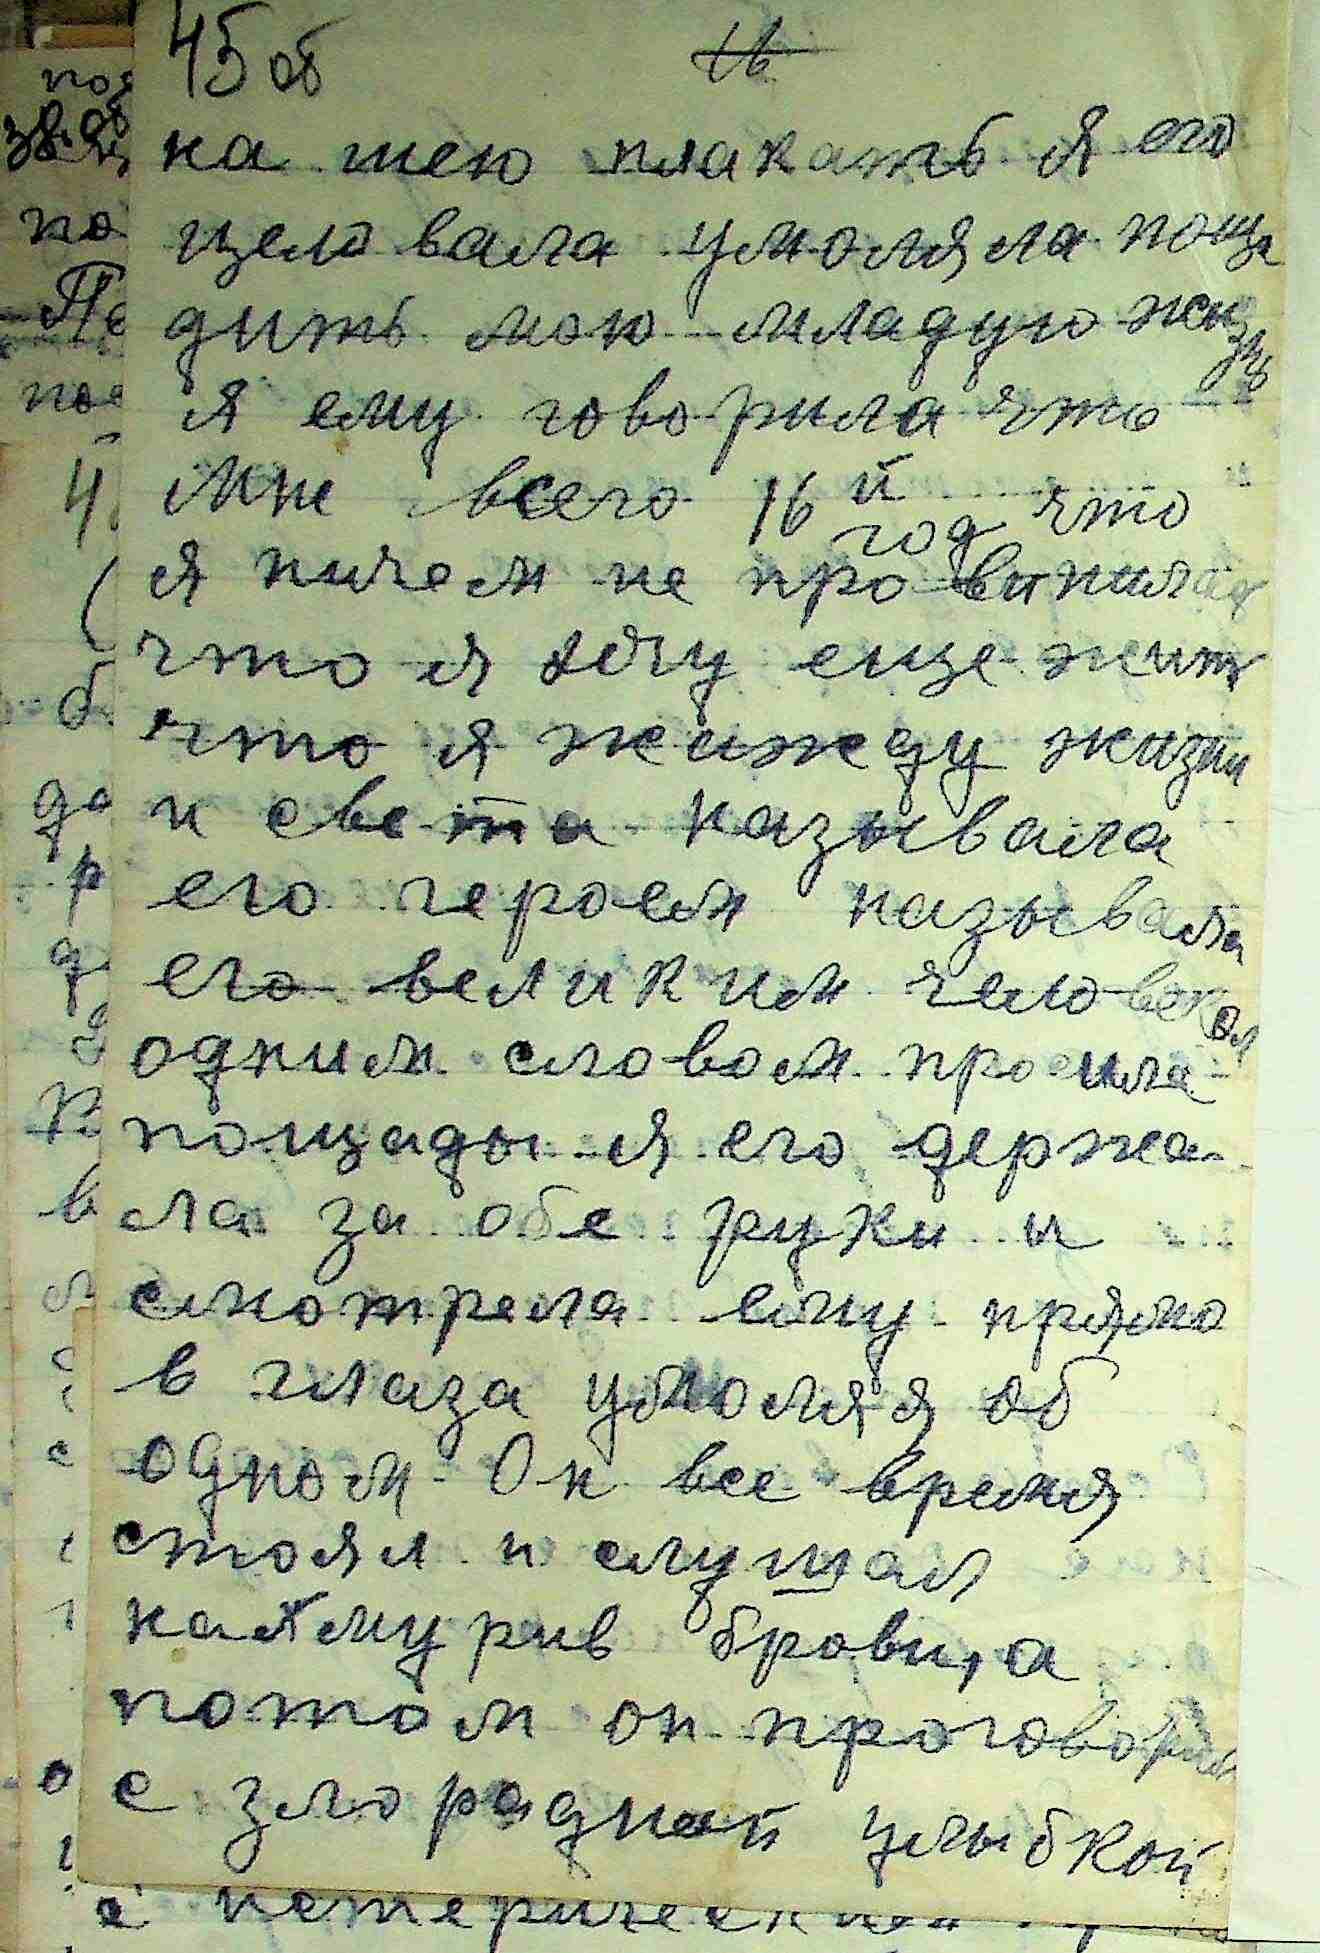 45 об
16
на шею плакать я его
целовала умоляла поща
дить мою младую жизнь
я ему говорила что
мне всего 16 й год что
я ничем не провинилась
что я хочу еще жить
что я жажду жизни
и света называла
его героем называла
его великим человеком
одним словом просила
пощады я его держа-
ла за обе руки и
смотрела ему прямо
в глаза умоляя об
одном. Он все время
стоял и слушал
нахмурив брови, а
потом он проговорил
с злорадной улыбкой